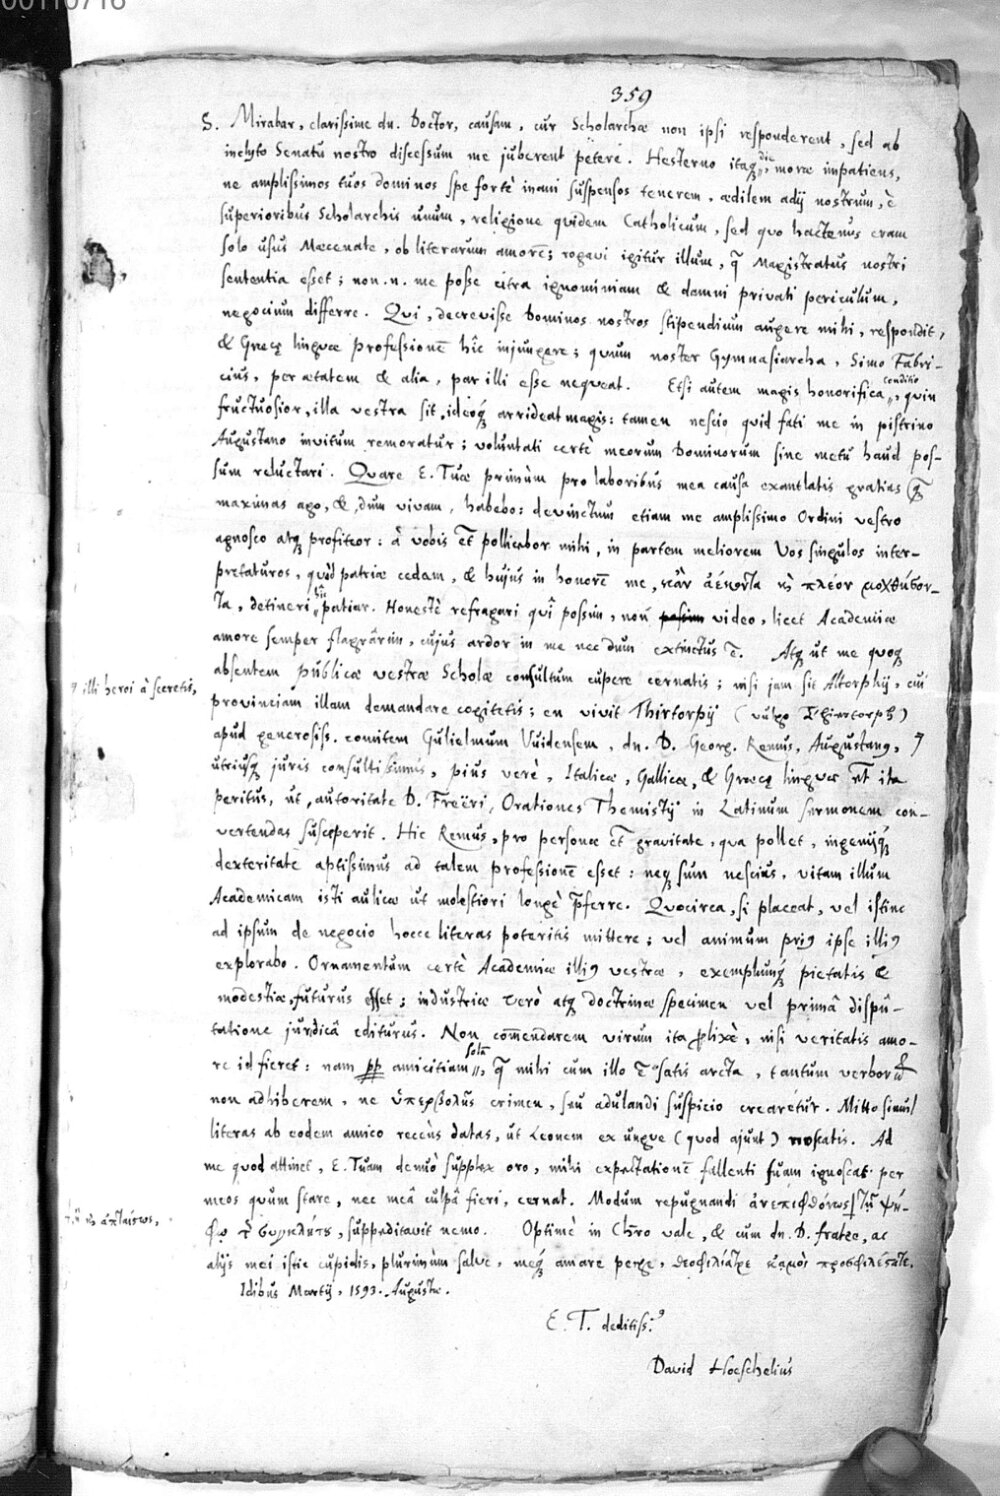 00110716
359
S. Mirabar, clarissime dn. Doctor, causam, cur Scholarchæ non ipsi responderent, sed ab
inclyto Senatu nostro discessum me juberent petere. Hesterno itaq die, moræ impatiens,
ne amplissimos tuos dominos spe fortè inani suspensos tenerem, ædilem adij nostrum, è
superioribus Scholarchis unum, religione quidem Catholicum, sed quo hactenus eram
solo usus Mæcenate, ob literarum amorē; rogavi igitur illum, q Magistratus nostri
sententia esset; non .n. me posse citra ignominiam & damni privati periculum,
negocium differre. Qui, decrevisse Dominos nostros stipendium augere mihi, respondit,
& Græcę linguæ professionē hîc injungere; quum noster Gymnasiarcha, Simo Fabri-
cius, per ætatem & alia, par illi esse nequeat. Etsi autem magis honorifica conditio, quin
fructuosior, illa vestra sit, ideoq arrideat magis: tamen nescio quid fati me in pistrino
Augustano invitum remoratur; voluntati certè meorum Dominorum sine metu haud pos-
sum reluctari. Quare E. Tuæ primùm pro laboribus mea causa exantlatis gratias q
maximas ago, &, dum vivam, habebo: devinctum etiam me amplissimo Ordini vestro
agnosco atq profiteor: à vobis et pollicebor mihi, in partem meliorem Vos singulos inter-
pretaturos, quòd patriæ cedam, & hujus in honorē me, κἂν ἀέκοντα κ πλέον μοχθήσον-
τα, detineri sic patiar. Honestè refragari quî possim, non video, licet Academiæ
amore semper flagrârim, cujus ardor in me nec dum extinctus ē. Atq ut me quoq
absentem publicæ vestræ Scholæ consultum cupere cernatis; nisi jam sit Altorphij, cui
provinciam illam demandare cogitetis; en vivit Thirtorpij (vulgo Thirtorph)
apud generosiss. comitem Gulielmum Vuidensem, dn. D. Georg. Remus, Augustang,
illi heroi à secretis,
utriusq juris consultissimus, pius verè, Italicæ, Gallicæ, & Græcę linguæ et ita
peritus, ut, autoritate D. Freÿri, Orationes Themistij in Latinum sermonem con-
vertendas susceperit. Hic Remus, pro personæ et gravitate, qua pollet, ingenijq
dexteritate aptissimus ad talem professionē esset: neq sum nescius, vitam illum
Academicam isti aulicæ ut molestiori longè p̄ferre. Quocirca, si placeat, vel istinc
ad ipsum de negocio hocce literas poteritis mittere; vel animum prig ipse illig
explorabo. Ornamentum certè Academiæ illig vestræ, exemplumq pietatis &
modestiæ, futurus esset; industriæ verò atq doctrinæ specimen vel primâ dispu-
tatione juridicâ editurus. Non com̄endarem virum ita prolixè, nisi veritatis amo-
re id fieret: nam pp amicitiam solā, q mihi cum illo ē satis arcta, tantum verborū
non adhiberem, ne ὑπερβολῆς crimen, seu adulandi suspicio crearetur. Mitto simul
literas ab eodem amico recèns datas, ut Leonem ex ungue (quod ajunt) noscatis. Ad
me quod attinet, E. Tuam denuò supplex oro, mihi expectationē fallenti suam ignoscat per
meos quum stare, nec meâ culpâ fieri, cernat. Modum repugnandi ἀνεπιφθόνως τῇ ψή-
κ ἀπλαίστως,
φῳ τ συγκλήτου, suppeditavit nemo. Optimè in Chro vale, & cum dn. D. fratre, ac
alijs mei istic cupidis, plurimùm salve, meq amare perge, θεοφιλέστατε κᾀμοὶ προσφιλέστατε.
Idibus Martij, 1593. Augustæ.
E. T. deditiss.g
David Hoeschelius